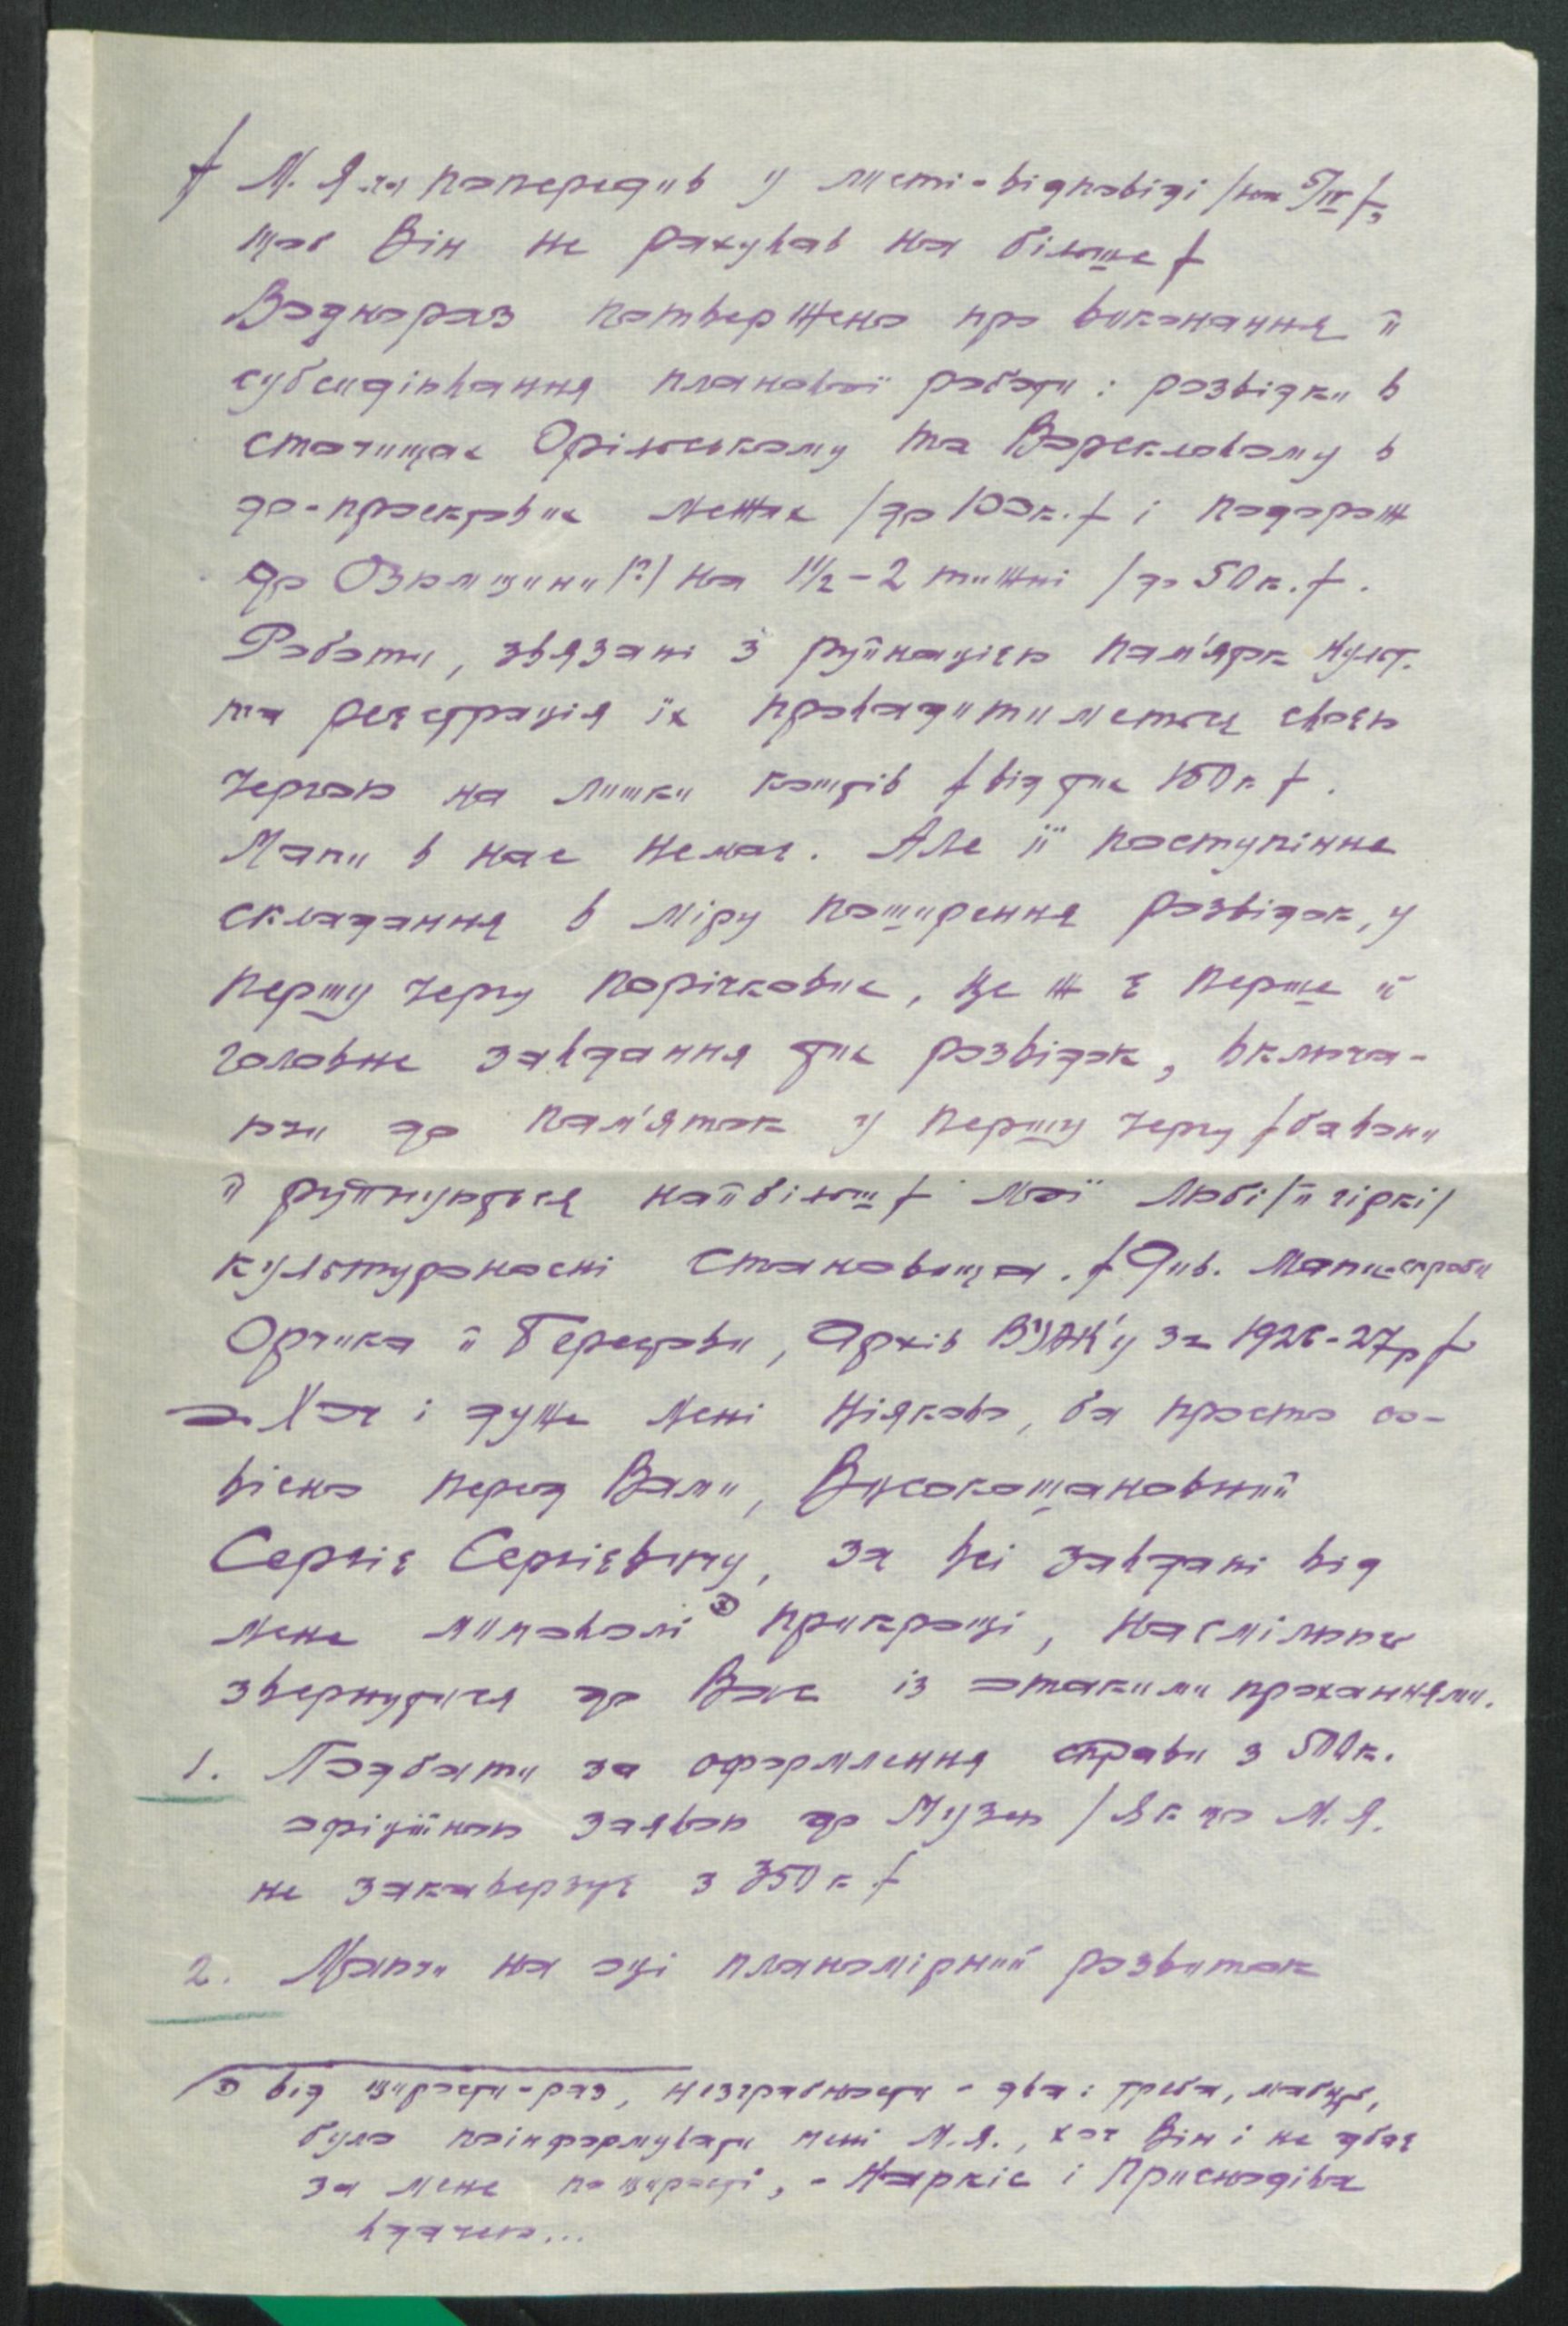 / М. Я-ча попередив у листі-відповіді /на 5/IV/,
щоб Він не рахував на більше/
Воднораз потвержено про виконання й
субсидіювання планової роботи: розвідки в
сточищах Орільському та Ворскловому в
до-проєктових межах /до 100к./ і подорож
до Озомщини/?/ на 1 1/2-2 тижні /до 50к./.
Роботи, звязані з руйнацією пам'яток культ.
та реєстрація їх провадитиметься своєю
чергою на лишки коштів /від тих 150к/.
Мапи в нас немає. Але її поступінне
складання в міру поширення розвідок, у
першу чергу порічкових, це ж є перше й
головне завдання тих розвідок, включа-
ючи до пам'яток у першу чергу /бо вони
й руйнуються найбільш/ мої любі/й гіркі/
культуроносні становища. /Див. мапи-спроби
Орчика й Берестови, Архів ВУАК'у за 1926-27р/
Хоч і дуже мені ніяково, ба просто со-
вісно перед Вами, Високошановний
Сергіє Сергієвичу, за всі завдані від
мене мимоволі прикрощі, насмілююсь
звернутися до Вас із отакими проханнями.
1. Подбати за оформлення справи з 500к.
офіційною заявою до Музею /якщо М.Я.
не закаверзує з 350к./
2. Маючи на оці планомірний розвиток
від щирости-раз, незграбности - два: треба, мабуть,
було поінформувати мені М.Я., хоч Він і не дбає
за мене по щирості, - Наркіс і Приснодіва
вдачею...